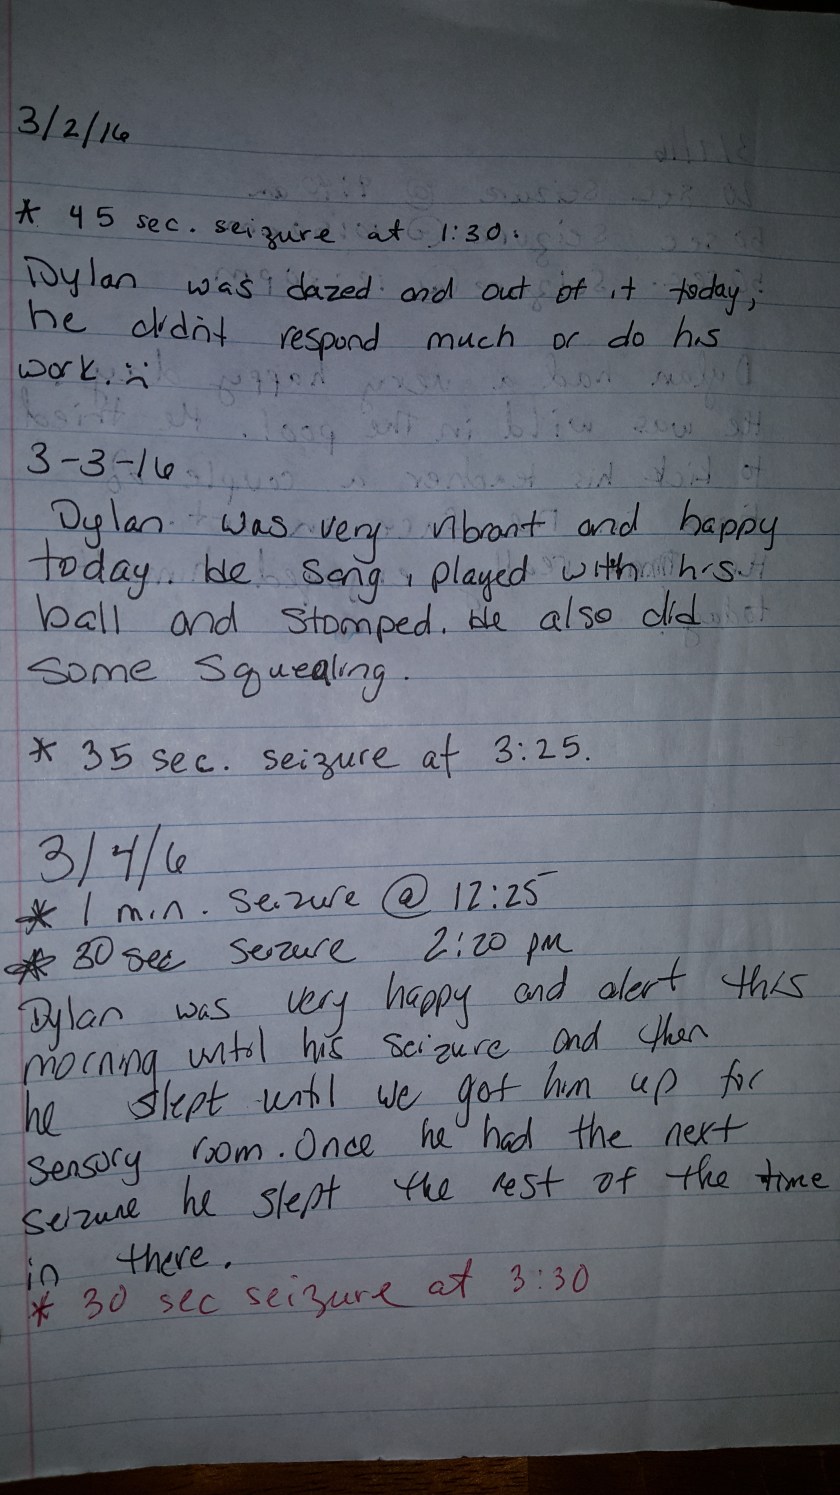 3/2/16
* 45 sec. seizure at 1:30.
Dylan was dazed and out of it today,
he didn't respond much or do his
work. :(
3-3-16
Dylan was very vibrant and happy
today. He sang, played with his
ball and stomped. He also did
some squealing.
* 35 sec. seizure at 3:25.
3/4/16
* 1 min. seizure @ 12:25
* 30 sec seizure 2:20 pm
Dylan was very happy and alert this
morning until his seizure and then
he slept until we got him up for
sensory room. Once he had the next
seizure he slept the rest of the time
in there.
* 30 sec seizure at 3:30